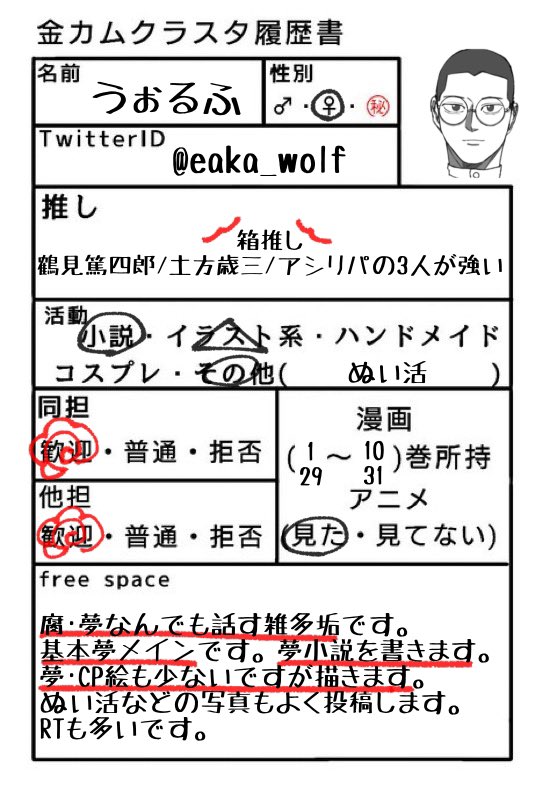 金カムクラスタ履歴書
名前
うぉるふ
性別
♂・♀・㊙
TwitterID
@eaka_wolf
推し
箱推し
鶴見篤四郎/土方歳三/アシリパの3人が強い
活動
小説・イラスト系・ハンドメイド
コスプレ・その他(ぬい活)
同担
歓迎・普通・拒否
他担
歓迎・普通・拒否
漫画
(1～10)巻所持
29 31
アニメ
(見た・見てない)
free space
腐・夢なんでも話す雑多垢です。
基本夢メインです。夢小説を書きます。
夢・CP絵も少ないですが描きます。
ぬい活などの写真もよく投稿します。
RTも多いです。